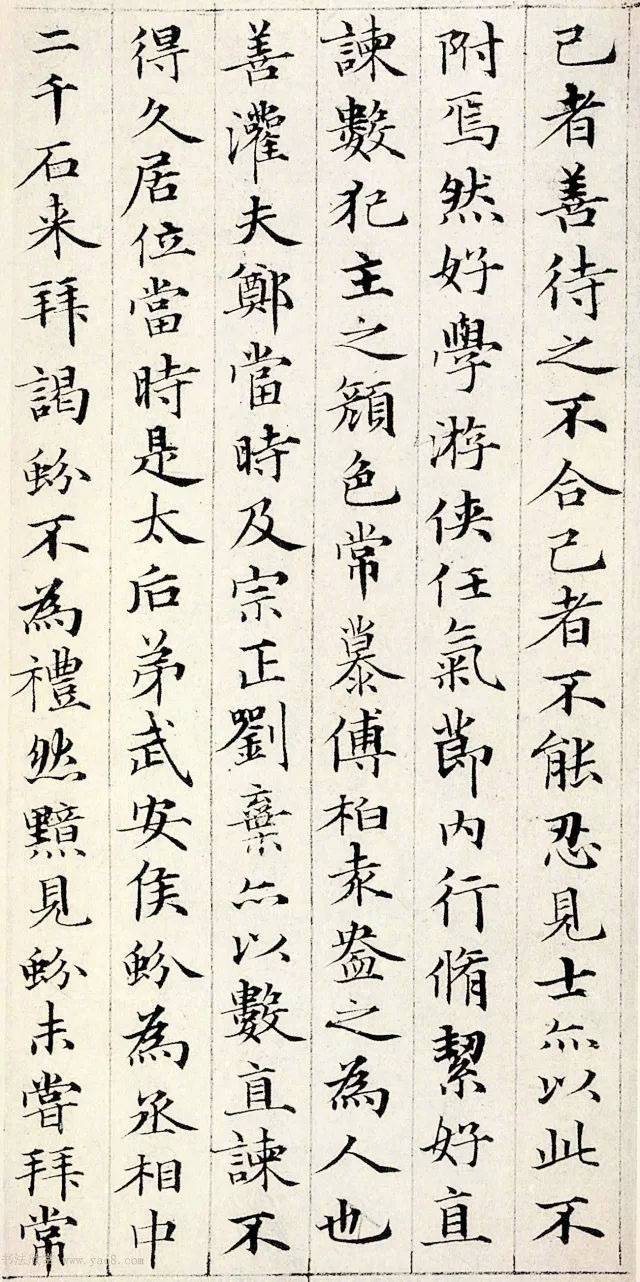 己者善待之不合己者不能忍見士亦以此不
附焉然好學游俠任氣節內行脩絜好直
諫數犯主之顏色常慕傅柏袁盎之為人也
善灌夫鄭當時及宗正劉棄亦以數直諫不
得久居位當時是太后弟武安侯蚡為丞相中
二千石来拜謁蚡不為禮然黯見蚡未嘗拜常
www.yac8.com